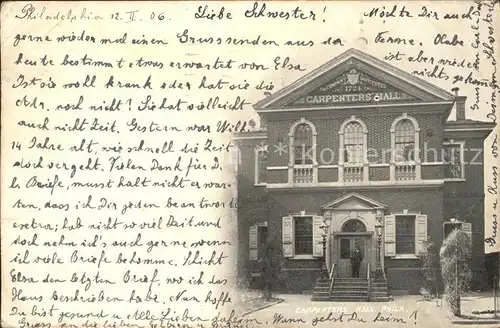 Philadelphia 12. II. 06. Liebe Schwester! Möchte Dir auch
gerne wieder mal einen Grus senden aus der Ferne. Habe
heute bestimmt etwas erwartet von Elsa ist aber wieder
nichts gekommen
Ist sie wohl krank oder hat sie die
Adr. noch nicht? Sie hat vielleicht
auch nicht Zeit. Gestern war Will.
14 Jahre alt, wie schnell die Zeit
doch vergeht. Vielen Dank für D.
l. Briefe, musst halt nicht erwar-
ten, dass ich Dir jeden beantworte
extra; hab nicht so viel Zeit und
doch nehm ich's auch gerne wenn
ich viele Briefe bekomme. Schickt
Elsa den letzten Brief, wo ich das
Haus beschrieben habe. Nun hoffe
Du bist gesund u. alle Lieben daheim. Wann gehst Du heim?
Gruss an die lieben
THE CARPENTERS' COMPANY
1724
CARPENTERS HALL
CARPENTERS HALL, PHILA.